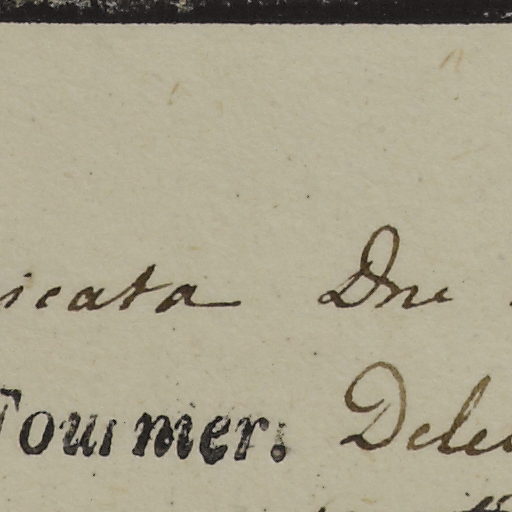 icata Dne
Tournier. Dele